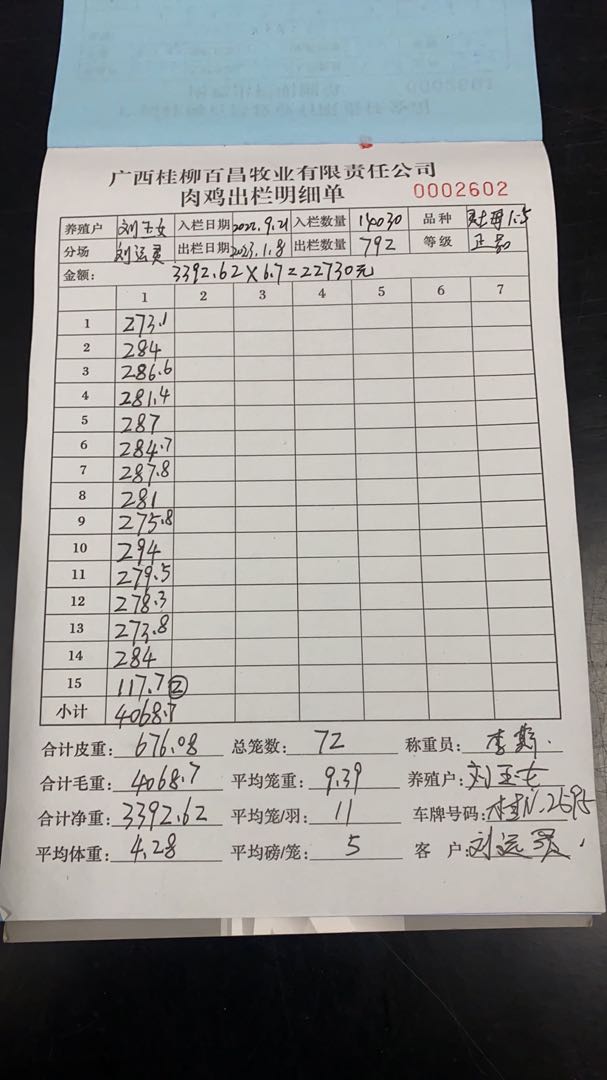 广西桂柳百昌牧业有限责任公司
肉鸡出栏明细单 0002602
养殖户 刘玉女 入栏日期 2022.9.21 入栏数量 14030 品种 1.5
分场 刘运 出栏日期 2023.1.8 出栏数量 792 等级 正品
金额: 3392.62×6.7=22730元
1 2 3 4 5 6 7
1 273.1
2 284
3 286.6
4 281.4
5 287
6 284.7
7 287.8
8 281
9 275.8
10 294
11 279.5
12 278.3
13 273.8
14 284
15 117.7 ②
小计 4068.7
合计皮重: 676.08 总笼数: 72 称重员: 李斯
合计毛重: 4068.7 平均笼重: 9.39 养殖户: 刘玉女
合计净重: 3392.62 平均笼/羽: 11 车牌号码: 桂N.2595
平均体重: 4.28 平均磅/笼: 5 客户: 刘运